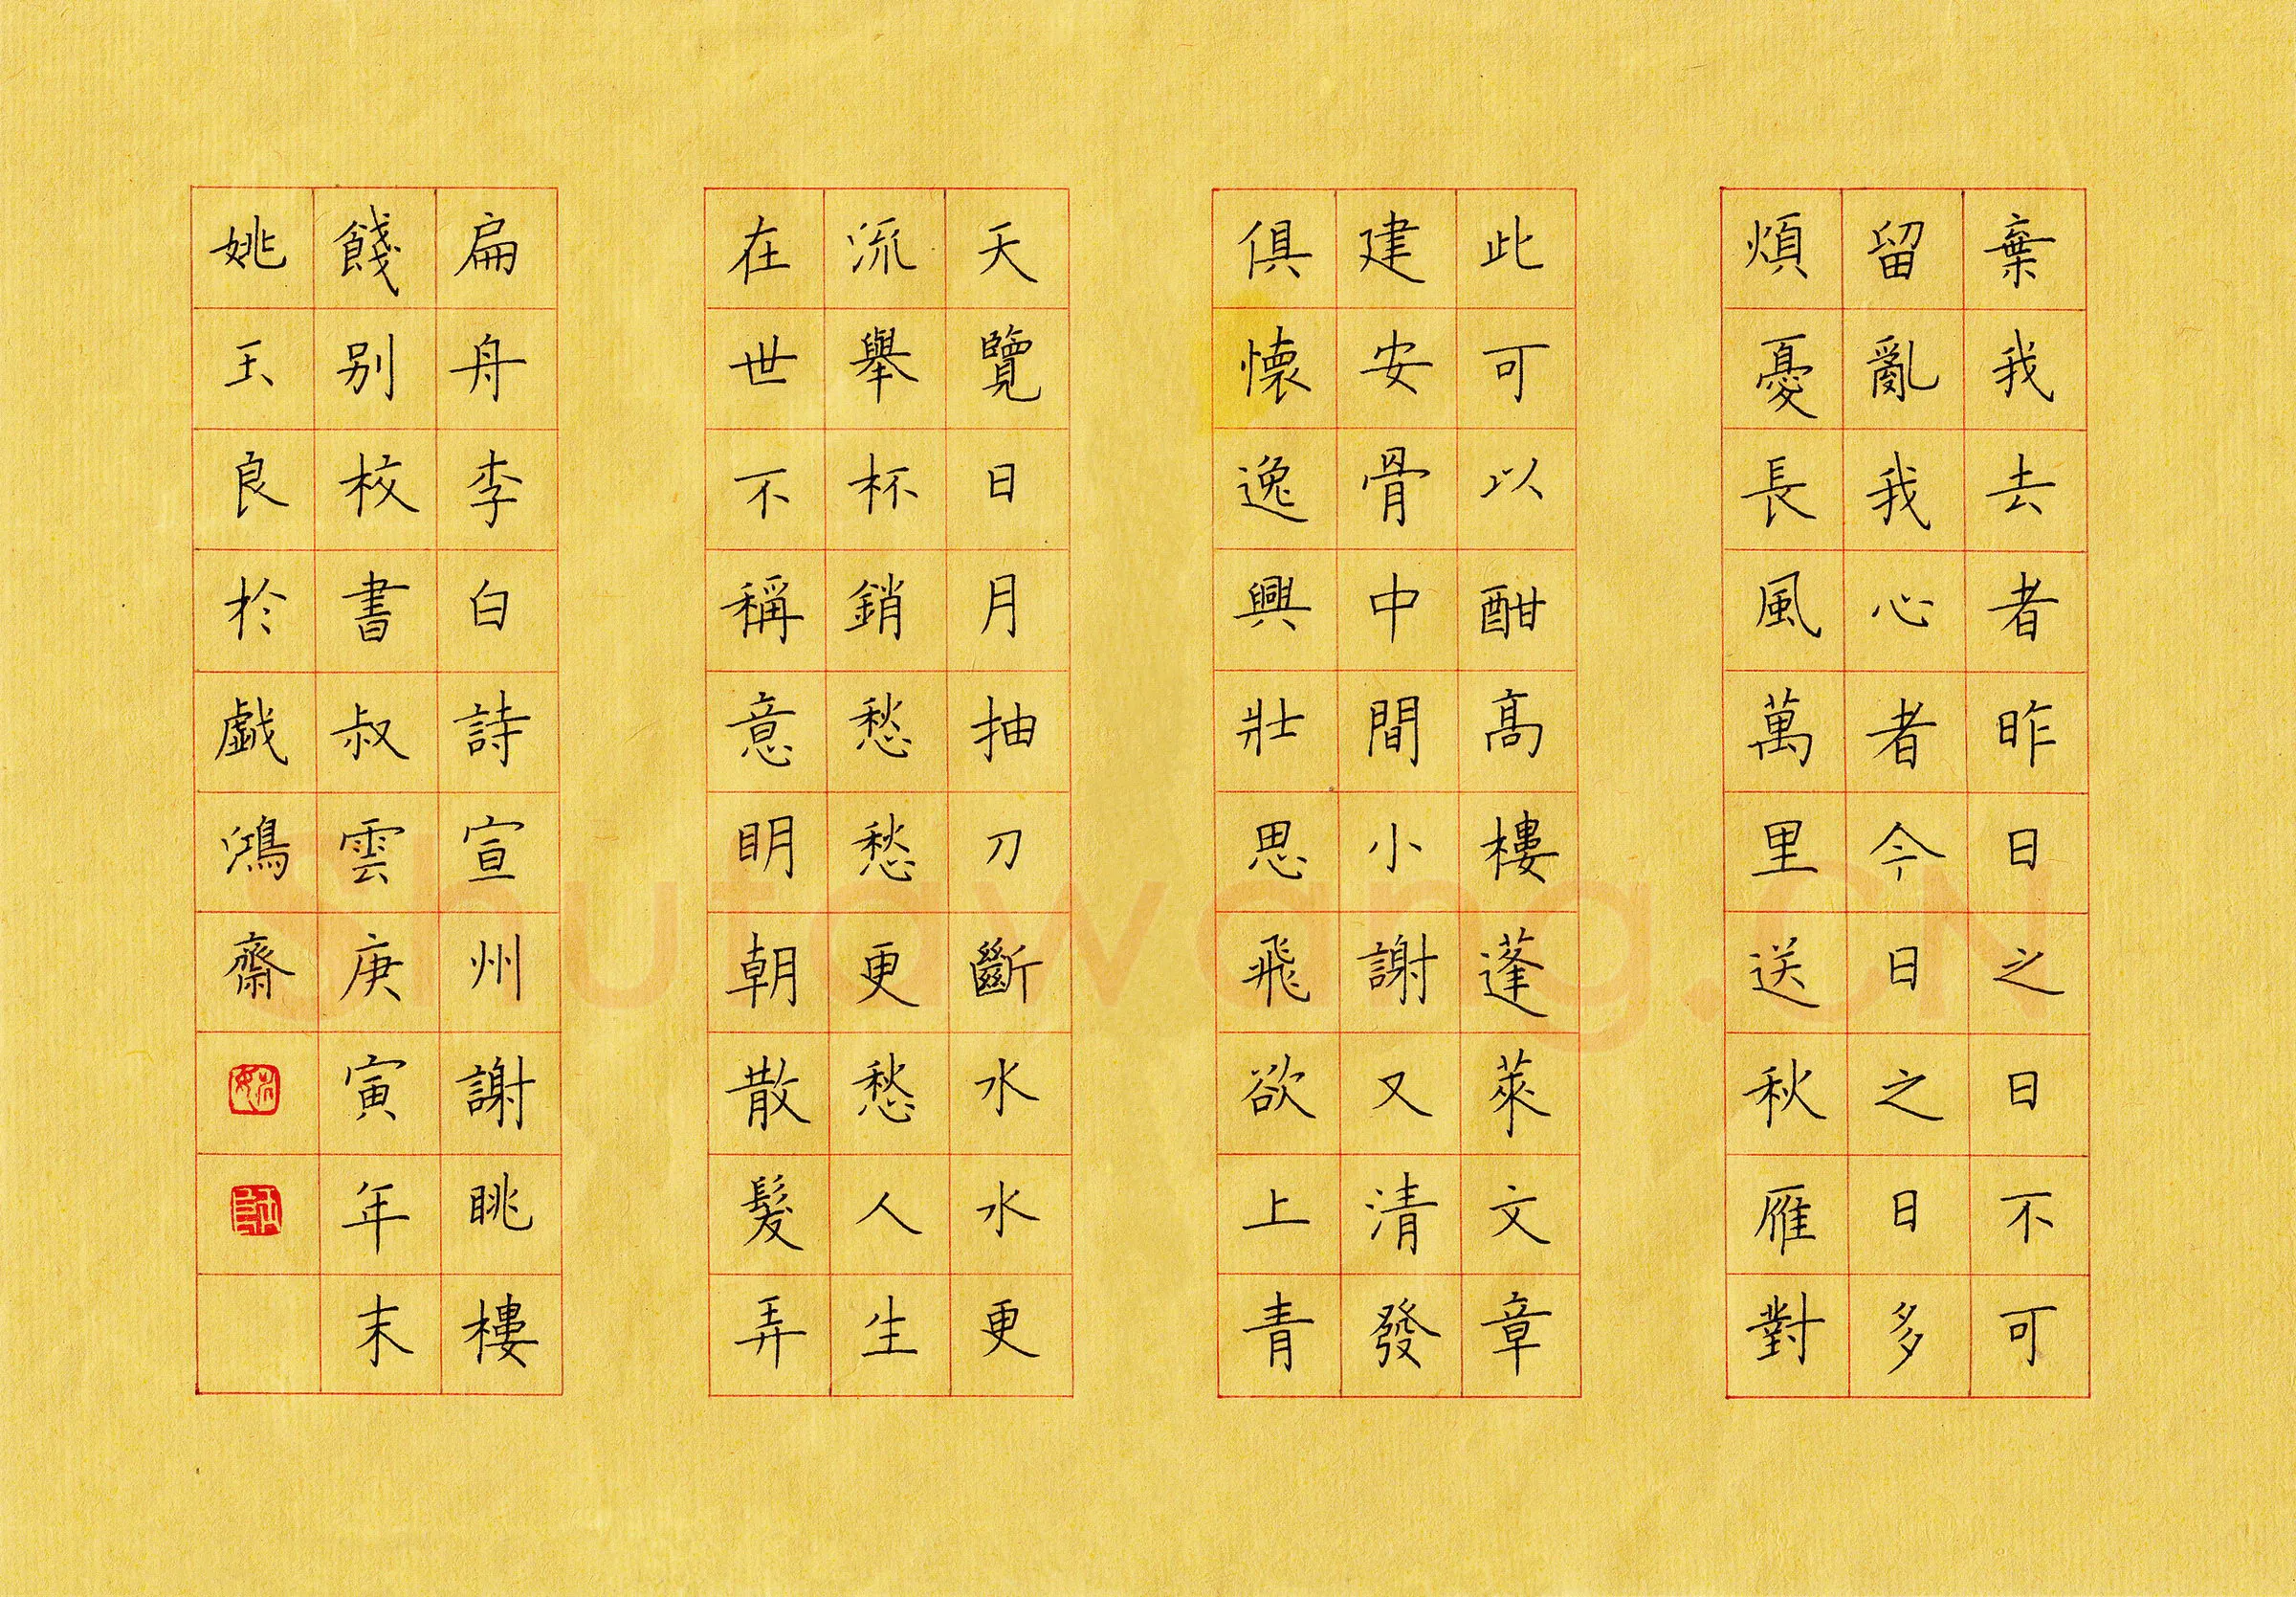 棄我去者昨日之日不可
留亂我心者今日之日多
煩憂長風萬里送秋雁對
此可以酣高樓蓬萊文章
建安骨中間小謝又清發
俱懷逸興壯思飛欲上青
天覽日月抽刀斷水水更
流舉杯銷愁愁更愁人生
在世不稱意明朝散髮弄
扁舟李白詩宣州謝眺樓
餞别校書叔雲庚寅年末
姚玉良於戲鴻齋
Shufawang.CN